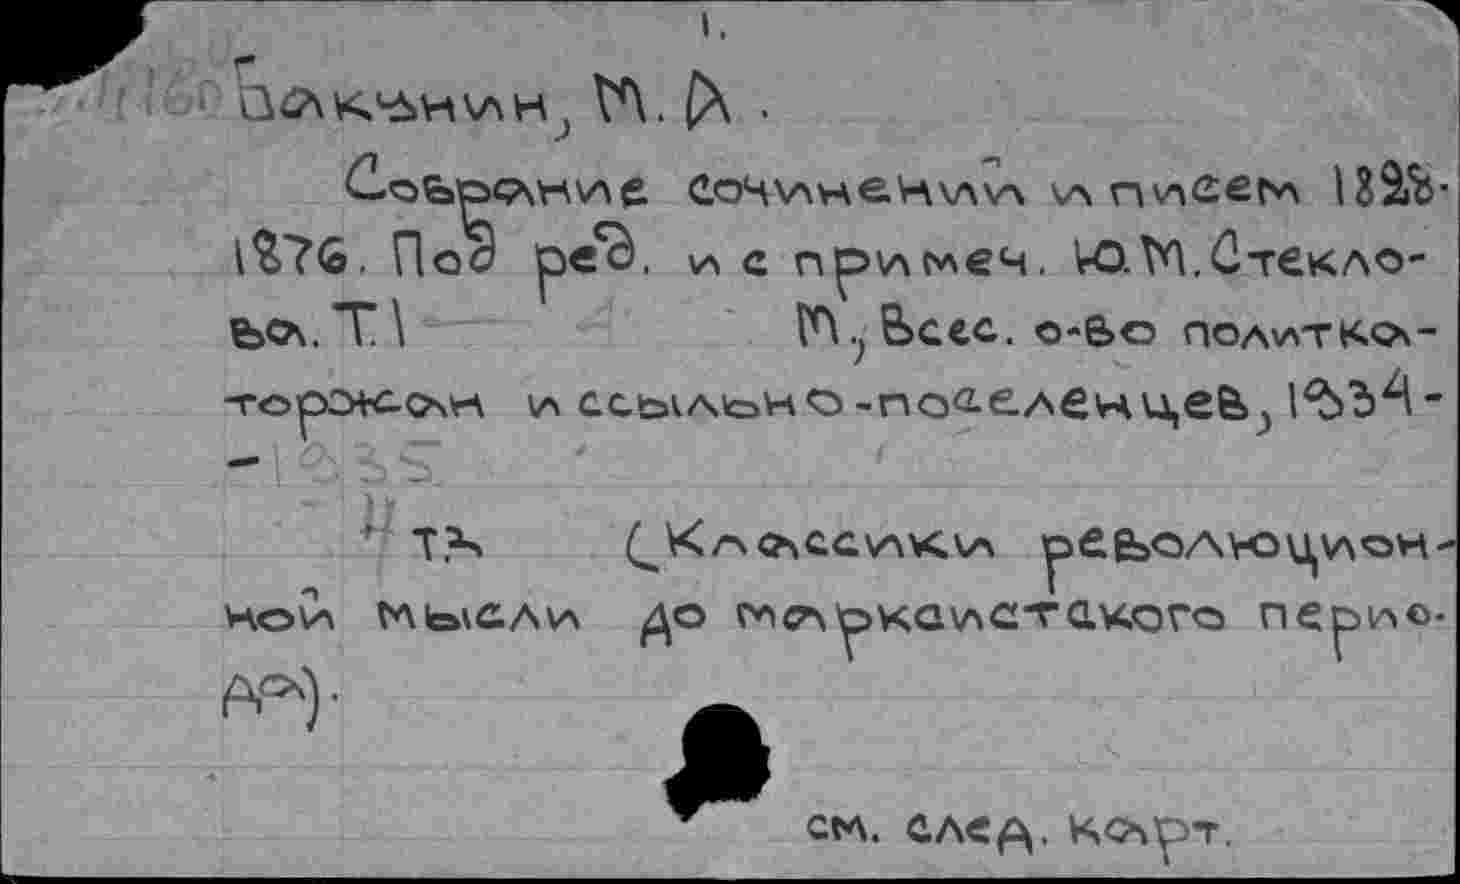 1.
Бакунин, М. А.
Собрание сочинений и писем 1828-
1876. Под ред. и с примеч. Ю.М.Стекло-
ва. Т.1 М., Всес. о-во политка-
торжан и ссыльно-поселенцев, 1934-
-1935
Т.3 (Классики революцион-
ной мысли до марксистского перио-
да).
см. след. карт.